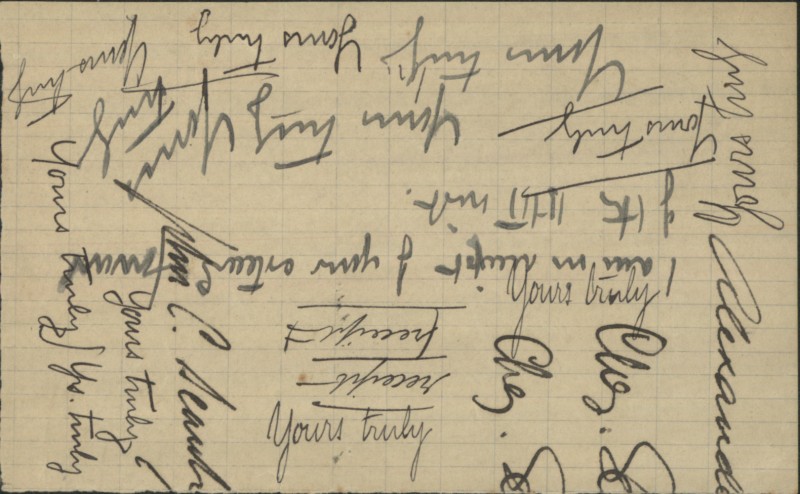 Yours truly
Yours truly
Yours truly
Yours truly
Yours truly
Yours truly
Yours truly
Yours truly
I am in receipt of your esteemed favour
of the 11th inst.
Yours truly
receipt
receipt
Yours truly
Yours truly
Yours truly
Yrs. truly
John C.
Chs. S
Chs. S
Alexande